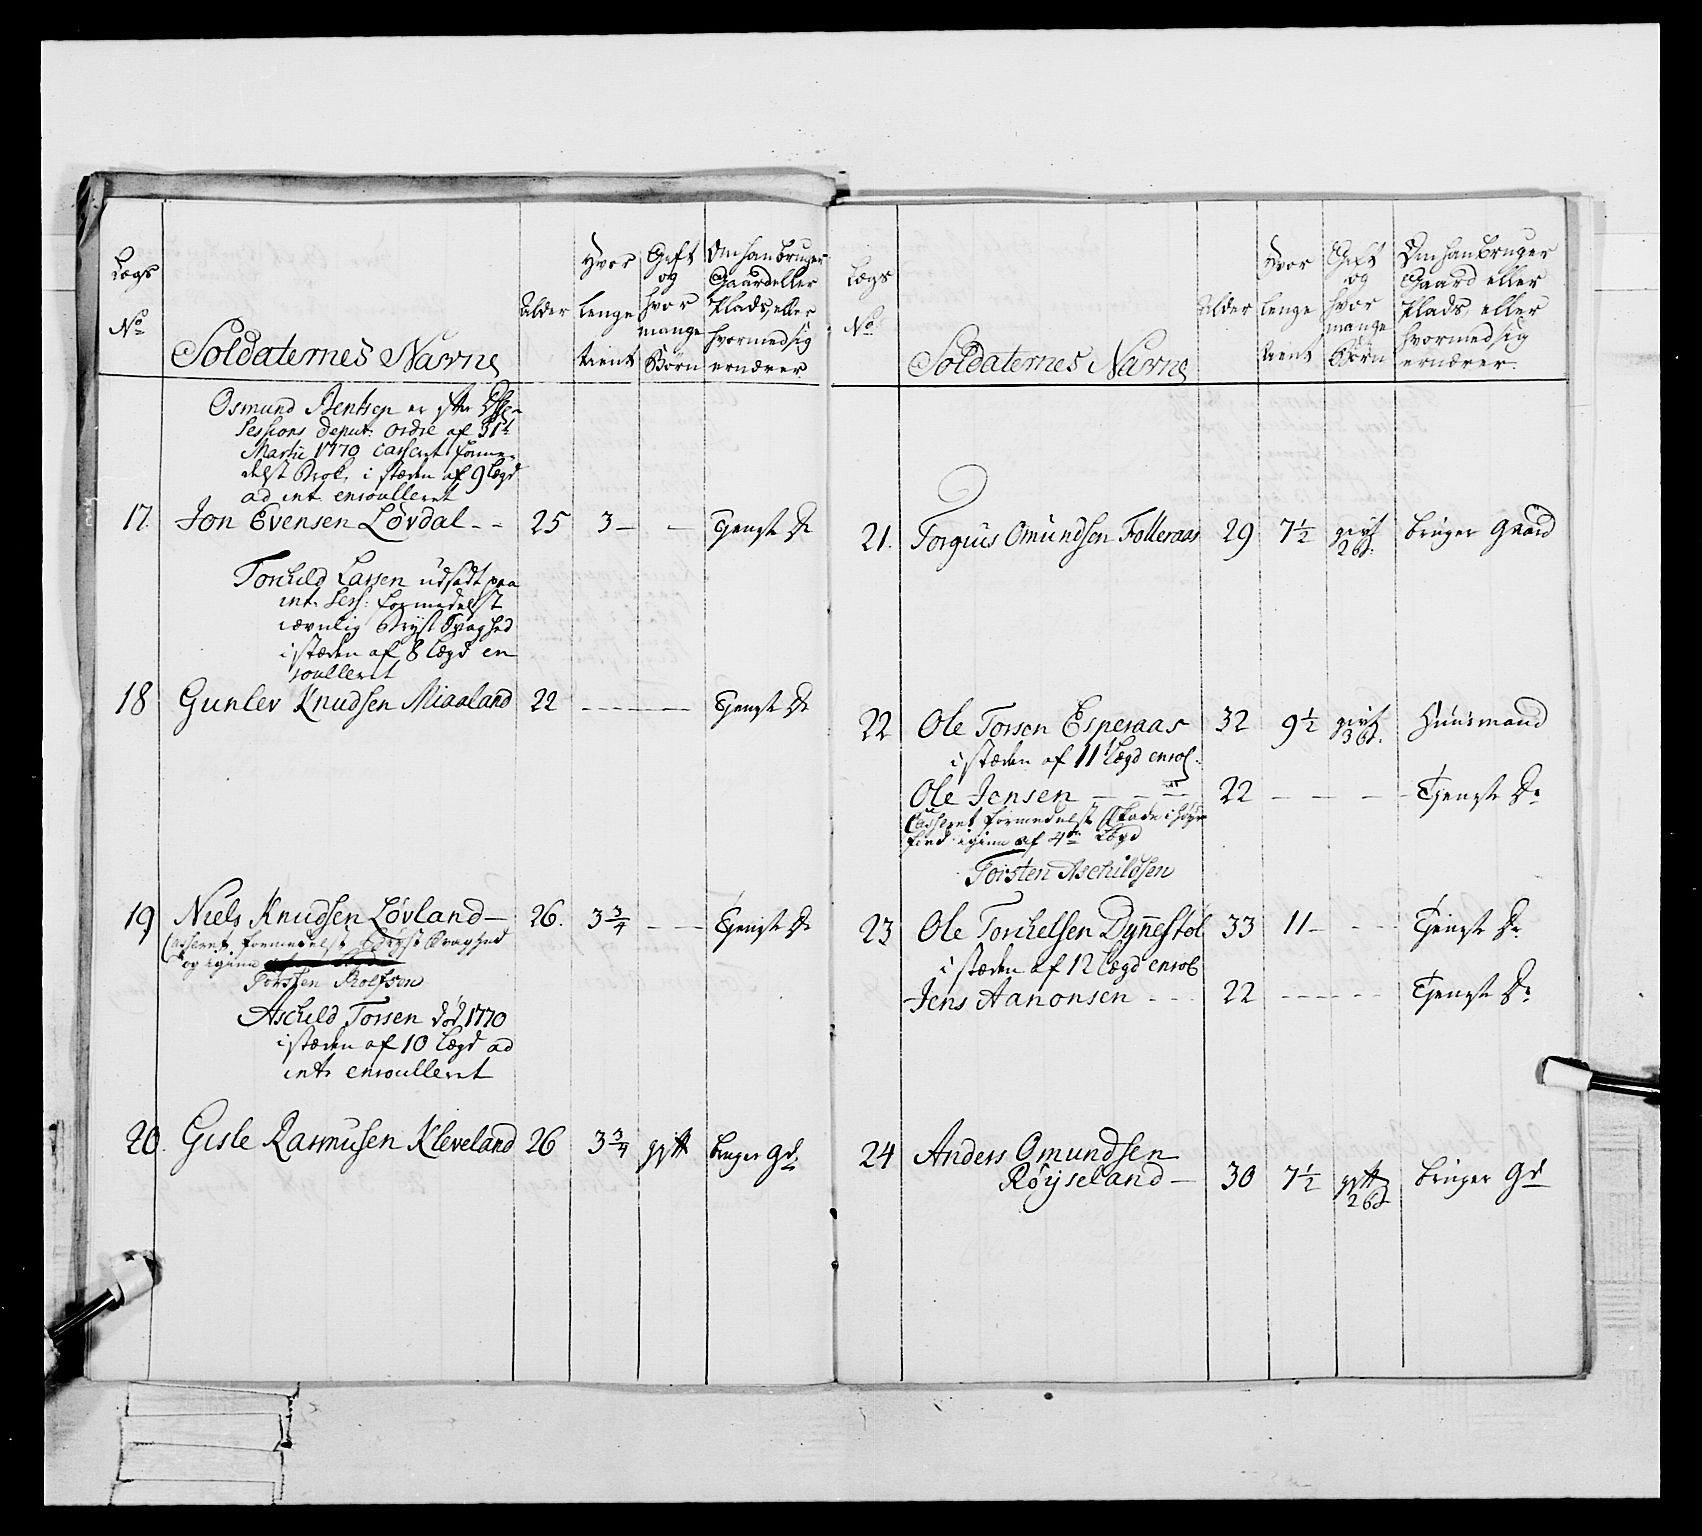 Legs
No
Soldaternes Navne
Alder
Hvor
lenge
tient
Gift
og
hvor
mange
Børn
Om han bruger
Gaard eller
Plads, eller
hvormed sig
ernærer
Osmund Bentsen er efter
Sessions deput: ordre af 31te
Martii 1770 casseret forme-
delst Brok, i stæden af 9 Lægd
ad int. enroulleret
17. Jon Evensen Løvdal - - 25 3 - - Tjenste Dr
Torkild Larsen udsadt paa
int. Sess: formedelst
iævnlig Bryst Svaghed
i stæden af 8 Lægd en
roulleret
18 Gunlev Knudsen Miaaland 22 - - - - Tjenste Dr
19 Niels Knudsen Løvland - 26. 3 3/4 - - Tjenste Dr
Casseret formedelst Bryst Svaghed
og igien
Torsten Rolfsen
Aschild Torsen død 1770
i stæden af 10 Lægd ad
int. enroulleret
20. Gisle Rasmusen Kleveland 26 3 3/4 gift bruger Gd
Lægs
No
Soldaternes Navne
Alder
Hvor
lenge
tient
Gift
og
hvor
mange
Børn
Om han bruger
Gaard eller
Plads, eller
hvormed sig
ernærer
21. Torgius Omundsen Folleraas 29 7 1/2 gift bruger Gaard
2 b.
22 Ole Torsen Esperaas 32 9 1/2 gift Huusmand
3 b.
i stæden af 11 Lægd enrol.
Ole Jensen - - - 22 - - - Tjenste Dr
Casseret formedelst Skade i høyre
igien af 4de Lægd
Torsten Aschildsen
23 Ole Torkelsen Dynestøl 33 11 - - - Tjenste Dr
i stæden af 12 Lægd enrol
Jens Aanonsen - - - 22 - - - - Tjenste Dr
24 Anders Omundsen
Røyseland - 30 7 1/2 gift bruger Gd
2 b